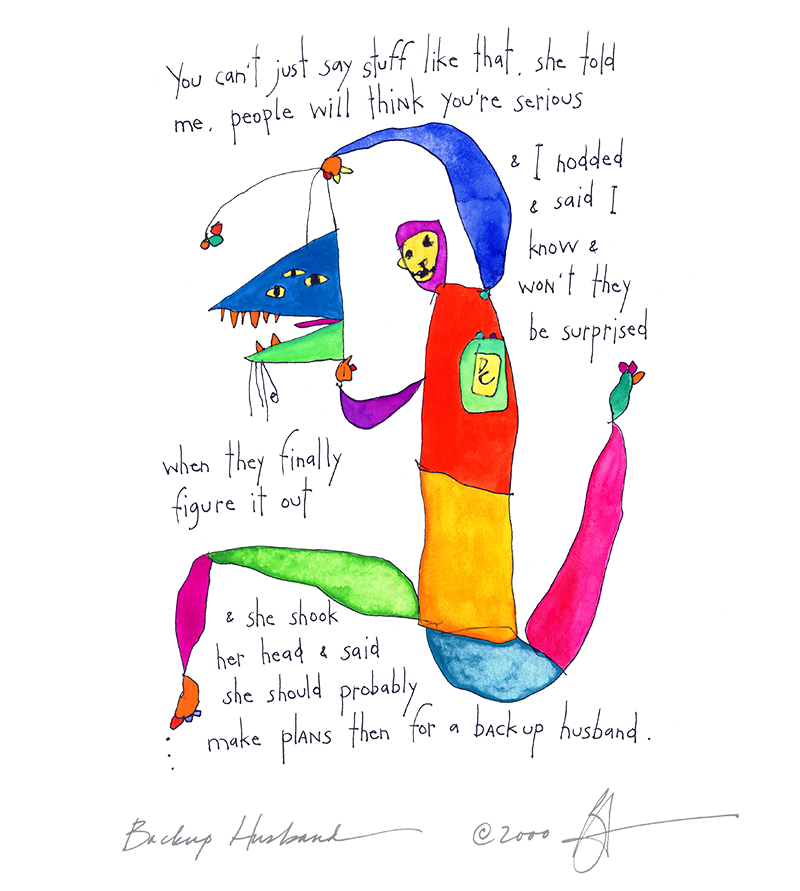 You can't just say stuff like that, she told
me, people will think you're serious
& I nodded
& said I
know &
won't they
be surprised
when they finally
figure it out
& she shook
her head & said
she should probably
make plans then for a backup husband.
Backup Husband
©2000